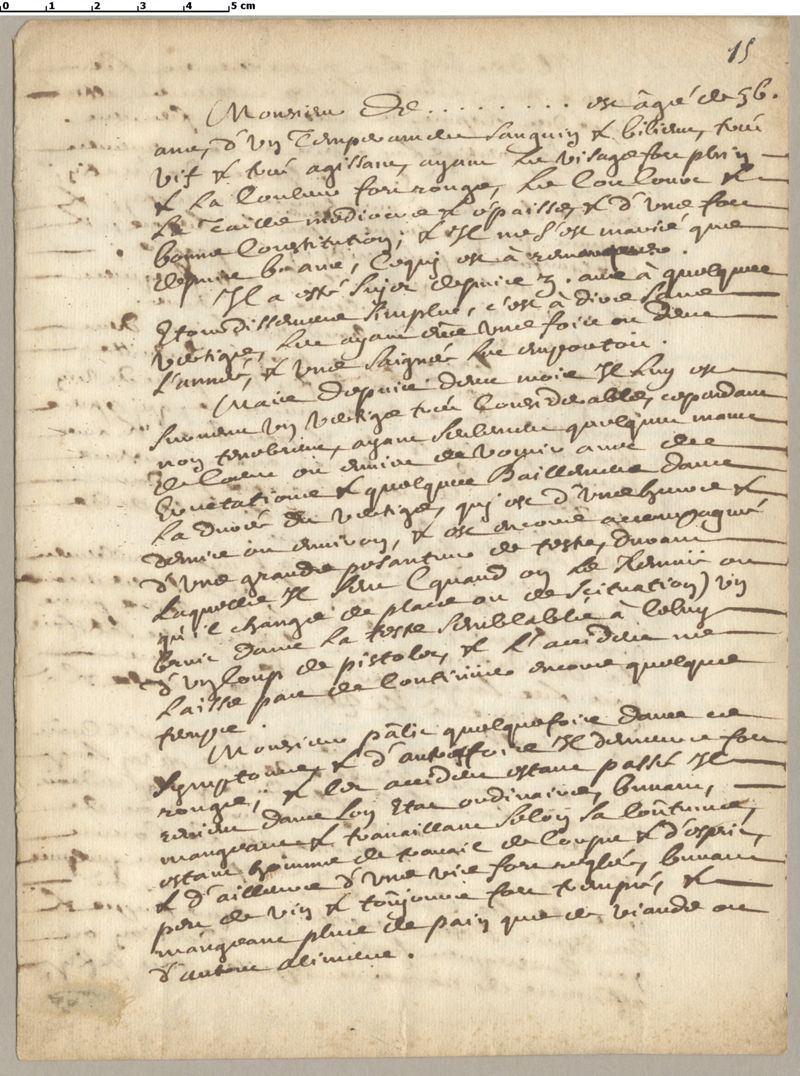 0 1 2 3 4 5 cm
15
Monsieur De . . . . . . . . . est âgé de 56.
ans, d'un Temperament sanguin & bilieux, tres
vif & tres agissant, ayant le visage fort plein
& la Couleur fort rouge, le Col Court &
la Taille mediocre & épaisse, & d'une fort
bonne Constitution; & Il ne s'est marié que
depuis 6 ans, Cequi est à remarquer.
Il a esté sujet depuis 3. ans à quelques
Etourdissemens simples, c'est à dire sans
vertige, les ayant une fois ou deux
L'année, & une saignée les emportoit.
Mais depuis deux mois Il luy est
survenu un vertige tres Considerable, cependant
non tenebreux, ayant seulement quelques maux
de Coeur ou envies de vomir avec des
Eructations & quelques Baillemens dans
la durée du vertige, qui est d'une heure &
demie ou environ, & est encore accompagné
d'une grande pesanteur de teste, durant
Laquelle Il sent (quand on le Remuë ou
qu'il change de place ou de scituation) un
bruit dans la teste semblable à Celuy
d'un Coup de pistolet, & L'accident ne
Laisse pas de Continuer encore quelque
temps.
Monsieur pâlit quelquefois dans ce
symptome, & d'autresfois Il demeure fort
rouge; & les accidens estans passés Il
revient dans son Etat ordinaire, beuvant,
mangeant & travaillant selon sa Coûtume,
estant homme de travail de Corps & d'esprit,
& d'ailleurs d'une vie fort reglée, beuvant
peu de vin & toûjours fort trempé, &
mangeant plus de pain que de viande ou
d'autres alimens.